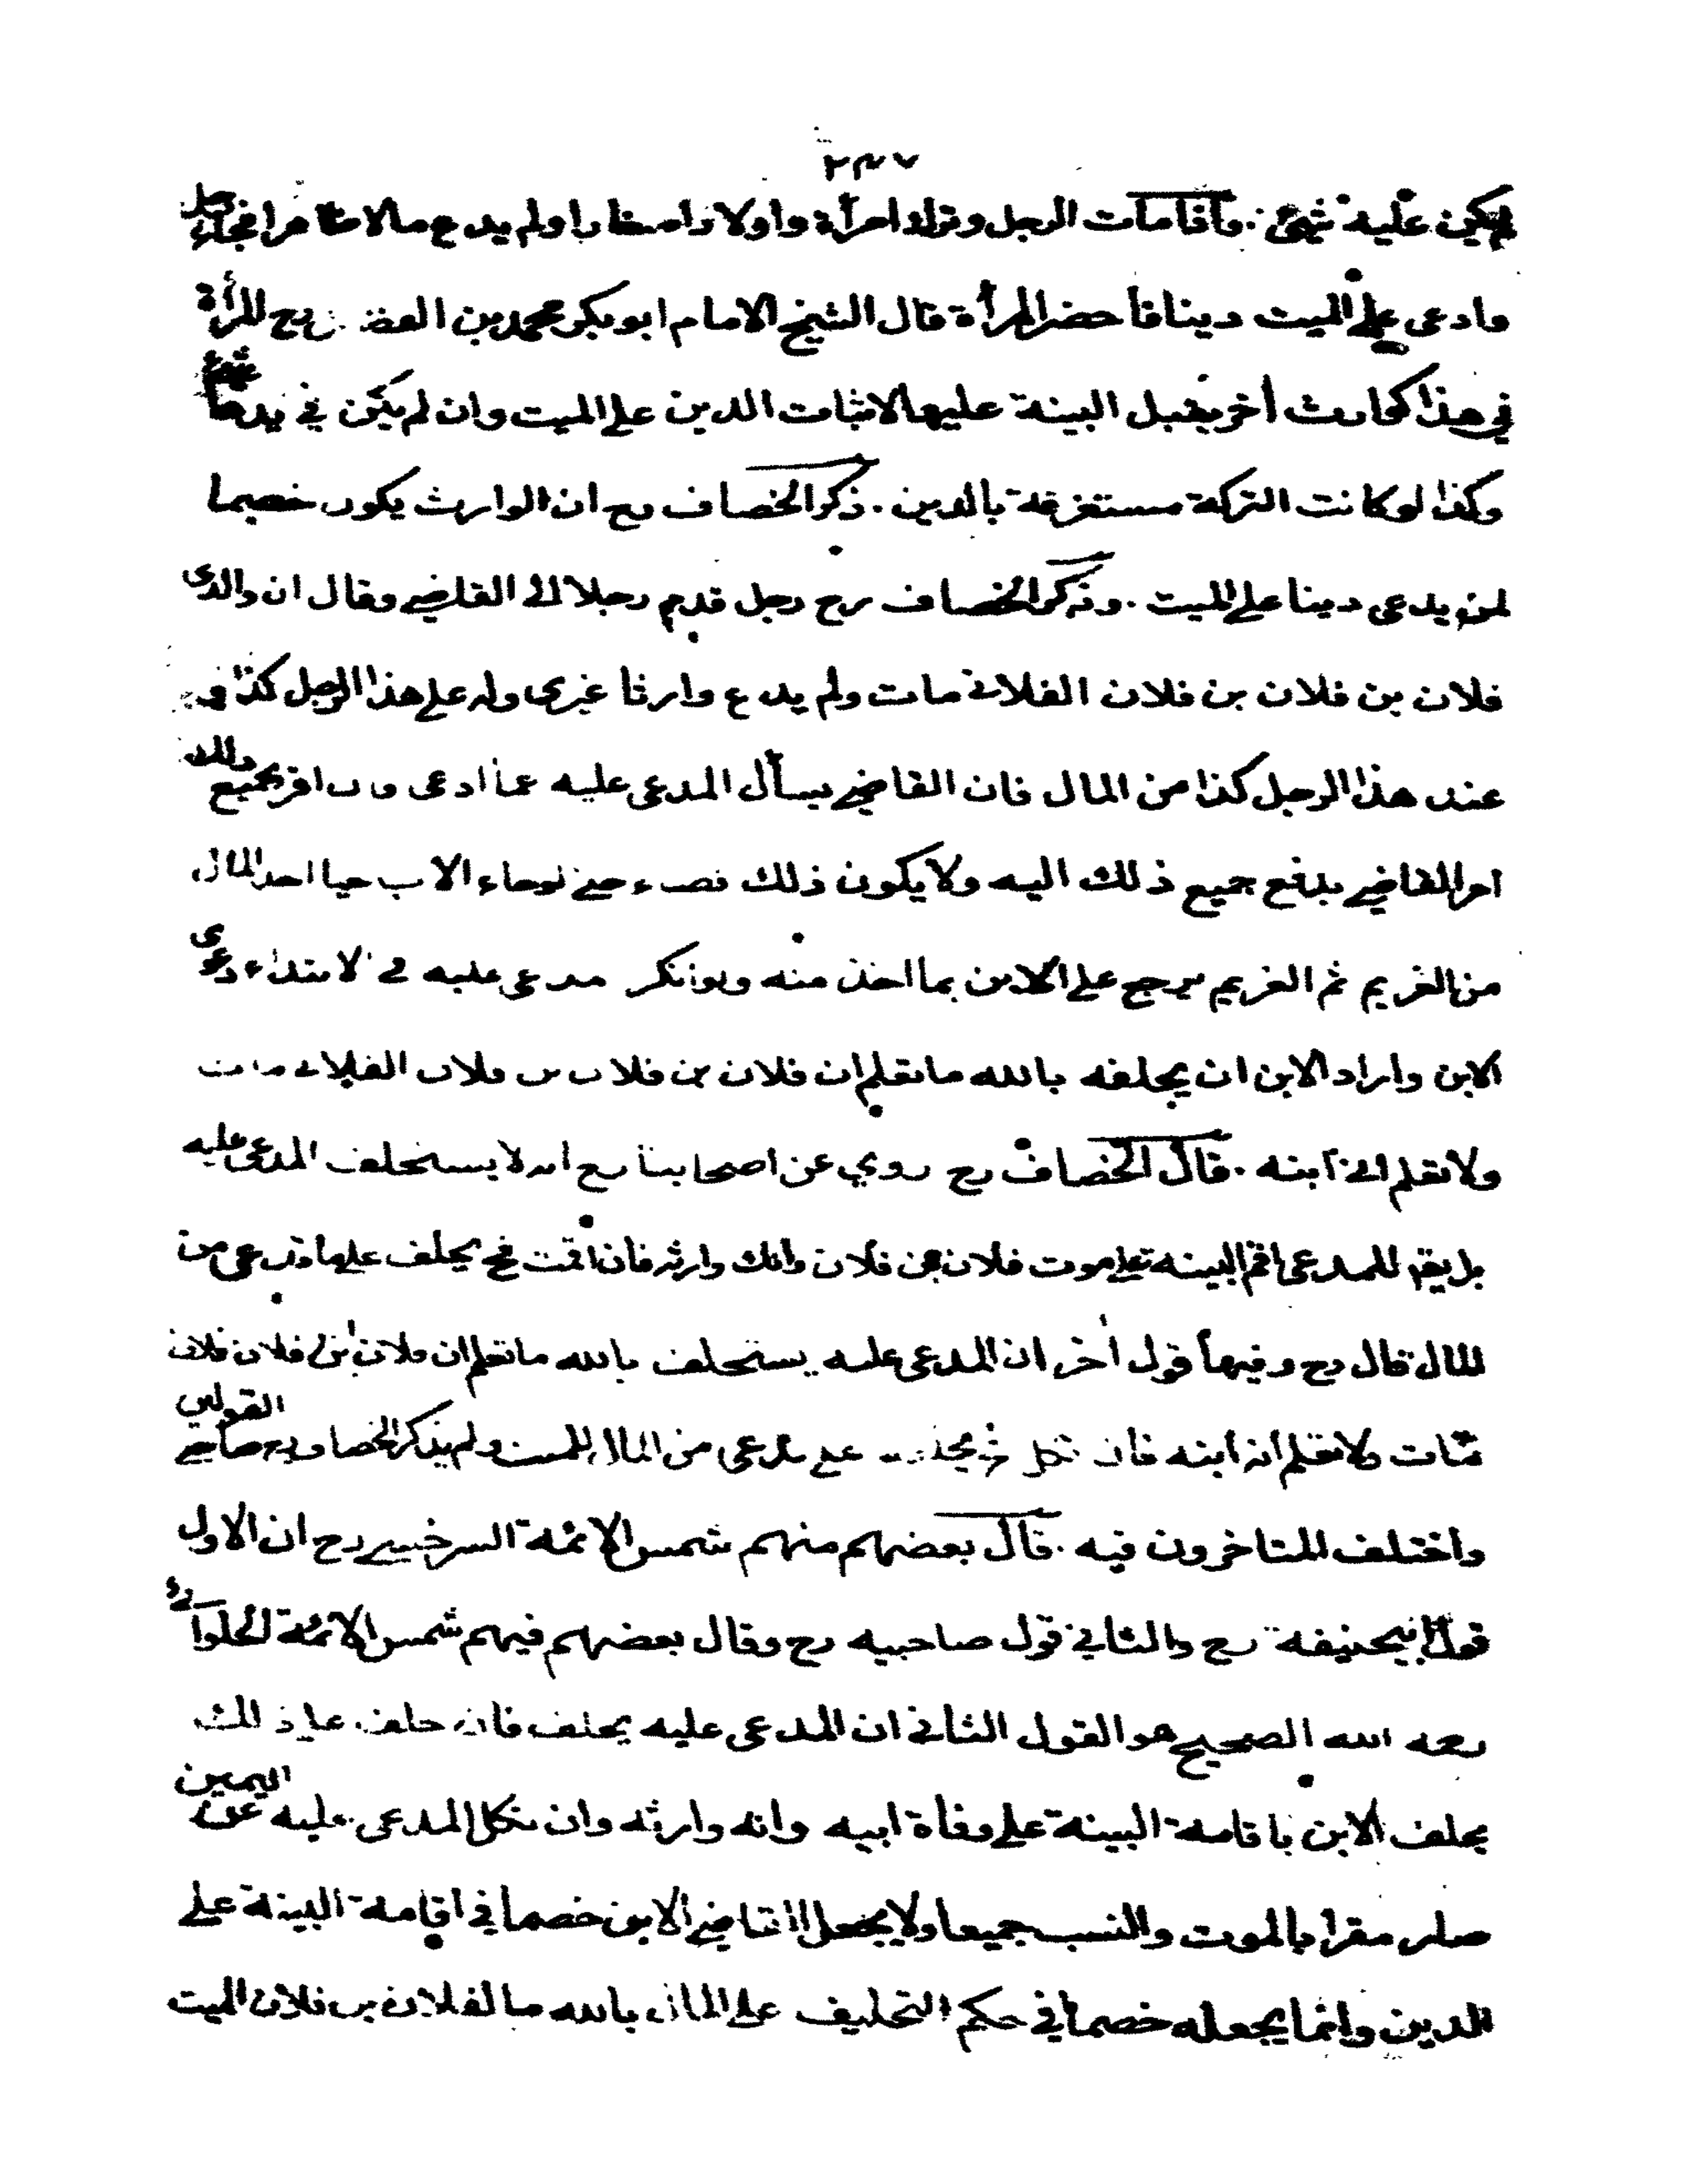 ٢٣٧
لم يكن عليه شيئ . واذا مات الرجل وترك امرأة واولادا صغارا ولم يدع مالا ظاهرا فجاء رجل
وادعى على الميت دينا فأحضر المرأة قال الشيخ الامام ابو بكر محمد بن الفضل رح المرأة
في هذا كوارث أخر يقبل البينة عليها لاثبات الدين على الميت وان لم يكن في يدها شيئ
وكذا لو كانت التركة مستغرقة بالدين . ذكر الخصاف رح ان الوارث يكون خصيما
لمن يدعى دينا على الميت . وذكر الخصاف رح رجل قدم رجلا الى القاضي وقال ان والدى
فلان بن فلان بن فلان الفلانى مات ولم يدع وارثا غيرى وله على هذا الرجل كذا وفي
عند هذا الرجل كذا من المال فان القاضي يسأل المدعى عليه عما ادعى وان اقر بجميع ذلك
امر القاضي بدفع جميع ذلك اليه ولا يكون ذلك قضاء حتى لو جاء الاب حيا اخذ المال
من الغريم ثم الغريم يرجع على الابن بما اخذ منه ولو انكر مدعى عليه في الابتداء دعوى
الابن واراد الابن ان يحلفه بالله ما تعلم ان فلان بن فلان بن فلان الفلانى مات
ولا تعلم انى ابنه . قال الخصاف رح روي عن اصحابنا رح انه لا يستحلف المدعى عليه
بل يقول للمدعى اقم البينة على موت فلان بن فلان وانك وارثه فان اقمت فح يحلف على ما تدعى من
المال قال رح وفيها قول أخر ان المدعى عليه يستحلف بالله ما تعلم ان فلان بن فلان فلان
مات ولا تعلم انه ابنه فان نكل ثم يحلف على يدعى من المال للميت ولم يذكر الخصاف رح صاحبي القولين
واختلف المتاخرون فيه . قال بعضهم منهم شمس الائمة السرخسي رح ان الاول
قول ابيحنيفة رح والثاني قول صاحبيه رح وقال بعضهم فيهم شمس الائمة الحلوانى
رحمه الله الصحيح هو القول الثانى ان المدعى عليه يحلف فان حلف على ذلك
يحلف الابن با قامة البينة على وفاة ابيه وانه وارثه وان نكل المدعى عليه عن اليمين
صار مقرا بالموت والنسب جميعا ولا يجعل القاضي الابن خصما في اقامة البينة على
الدين وانما يجعله خصما في حكم التحليف على المال بالله ما لفلان بن فلان الميت